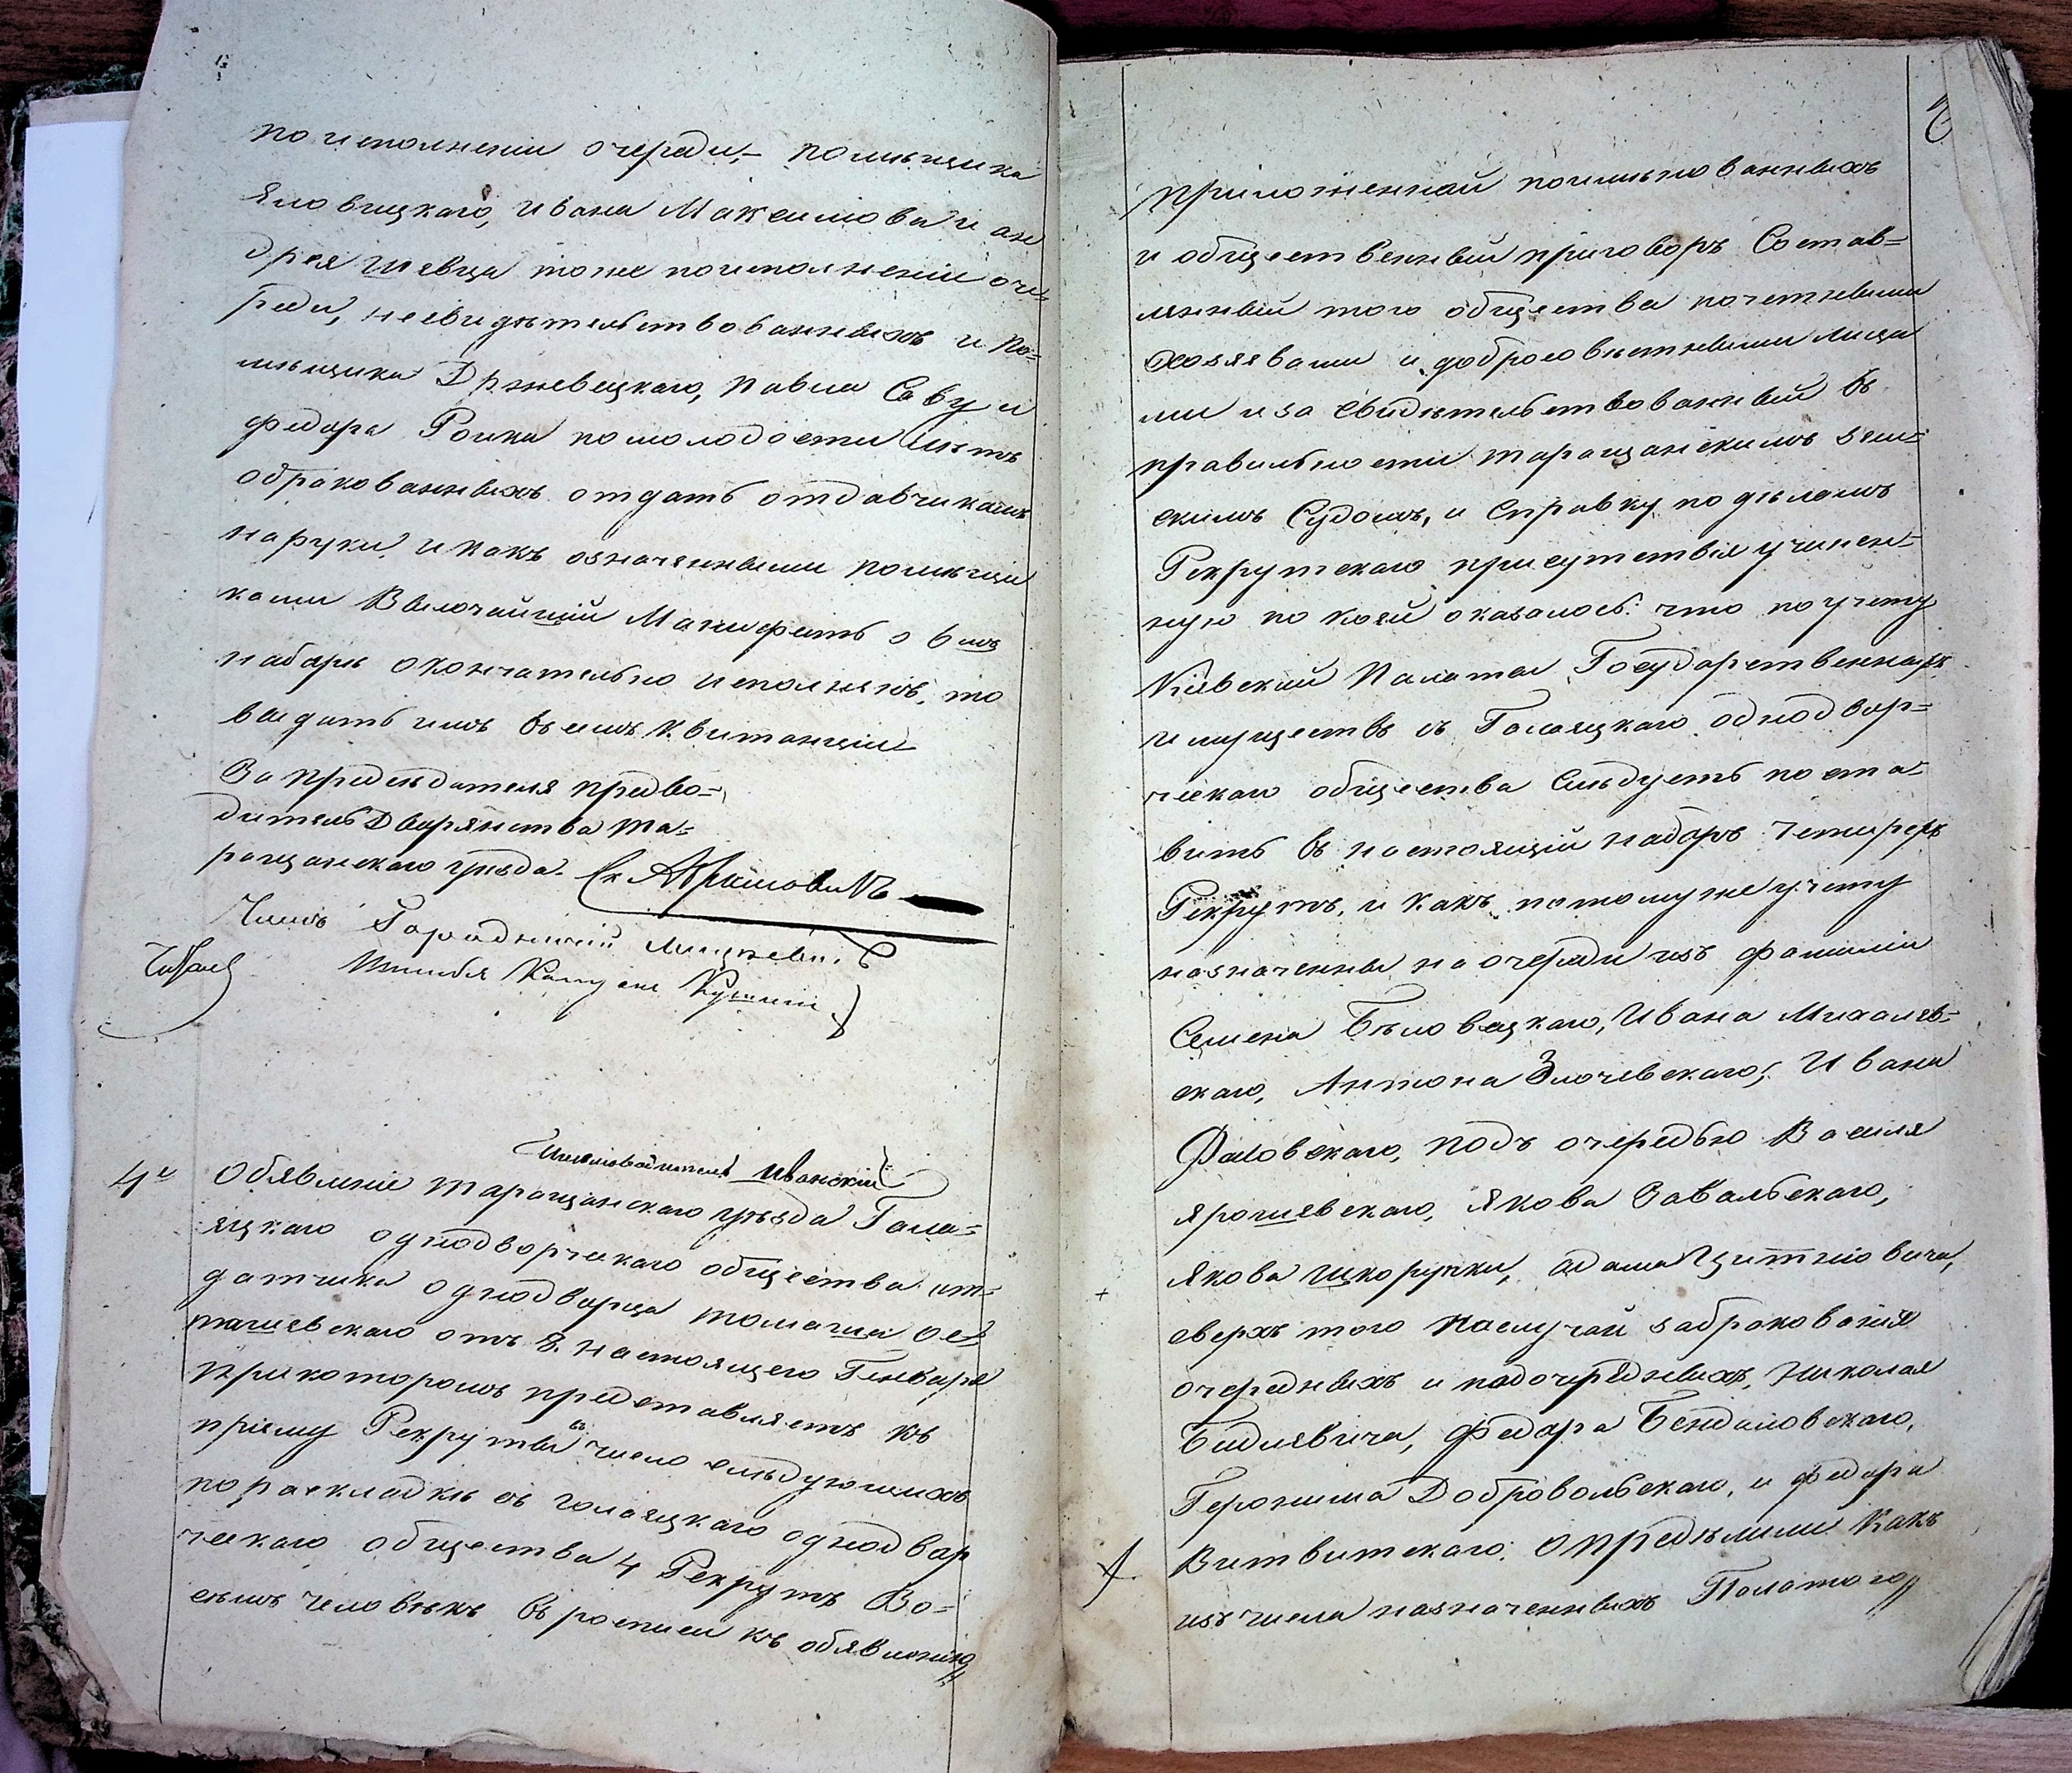 по исполненіи очереди, – помѣщика
Яловицкаго, Ивана Максимова и Ан
дрея Шевца тоже по исполненіи оче
реди, не свидѣтельствованныхъ и по=
мѣщика Држевецкаго, Павла Саву и
Федора Роика по молодости лѣтъ
обракованныхъ отдать отдатчикамъ
на руки и какъ означенными помѣщи
ками Высочайшій Манифестъ о 6мъ
наборѣ окончательно исполненъ, то
выдать имъ въ емъ квитанціи
За предсѣдателя предво=
дитель Дворянства Та=
ращанскаго уѣзда
Членъ Городничій
4й Обявленіе Таращанскаго уѣзда Гола=
яцкаго однодворческаго общества от=
датчика однодворца Томаша Ос
ташевскаго отъ 8 настоящего Генваря
при которомъ представляетъ къ
пріему Рекруты въ число слѣдующихъ
по раскладкѣ съ голаяцкаго однодвор
ческаго общества 4 Рекрутъ Во=
семь человѣкъ въ росписи къ обявленію
приложенной поименованныхъ
и общественный приговоръ Состав=
ленный того общества почетными
хозяевами и добросовѣстными лица
ми и засвидѣтельствованный въ
правильности Таращанскимъ Зем=
скимъ Судомъ, и Справку по дѣламъ
Рекрутскаго присутствія учинен=
ную по коей оказалось: что по учету
Кіевской Палаты Государственныхъ
имуществъ съ Голаяцкаго однодвор=
ческаго общества Слѣдуетъ поста=
вить въ настоящій наборъ четырехъ
Рекрутъ, и какъ по тому же учету
назначены на очереди изъ фамиліи
Семена Бѣловецкаго, Ивана Михалев=
скаго, Антона Злочевскаго, Ивана
Фаловскаго, подъ очередью Василя
Ярошевскаго, Якова Завальскаго,
Якова Шкорупки, Адама Цитновича,
сверхъ того на случай забракованія
очередныхъ и подочередныхъ, Николая
Бидлевича, Федора Бендаловскаго,
Геронима Добровольскаго, и Федора
Витвитскаго; Опредѣлили Какъ
изъ числа назначенныхъ Палатою